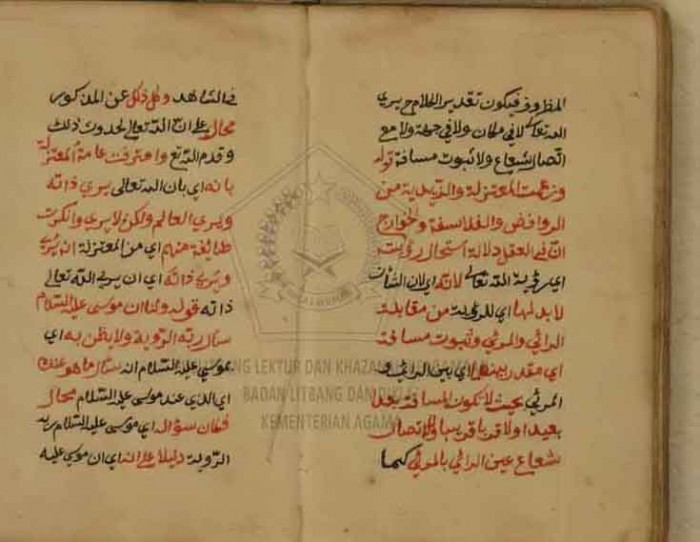 المظروف فيكون تقدير الكلام ح يرى
الله تعالى لا في مكان ولا في جهة ولا مع
اتصال شعاع ولا ثبوت مسافة قوله
وزعمت المعتزلة والزيدية من
الروافض والفلاسفة والخوارج
ان في العقل دلالة استحال رؤيته
اي رؤية الله تعالى لانه اي لان الشان
لا بد لها اي للرؤية من مقابلة
الرائي والمرئي وثبوت مسافة
اي مقدر بينهما اي بين الرائي و
المرئي بحيث لا يكون المسافة بعدا
بعيدا ولا قربا قريبا ولا اتصال
شعاع عين الرائي بالمرئي كما
في الشاهد وكل ذلك عن المذكور
محال على ان الله تعالى لحدوث ذلك
وقدم الله تع واعترفت عامة المعتزلة
بانه اي بان الله تعالى يرى ذاته
ويرى العالم ولكن لا يرى وانكرت
طائفة منهم اي من المعتزلة انه يرى
ويرى ذاته اي ان يرى الله تعالى
ذاته قوله ولنا ان موسى عليه السلام
سأل ربه الرؤية ولا يظن به اي
بموسى عليه السلام انه سأل ما هو عنده
اي الذي عند موسى عليه السلام محال
فكان سؤال اي موسى عليه السلام ربه
الرؤية دليلا على انه اي ان موسى عليه
LEKTUR DAN KHAZANAH
BADAN LITBANG DAN
KEMENTERIAN AGAMA